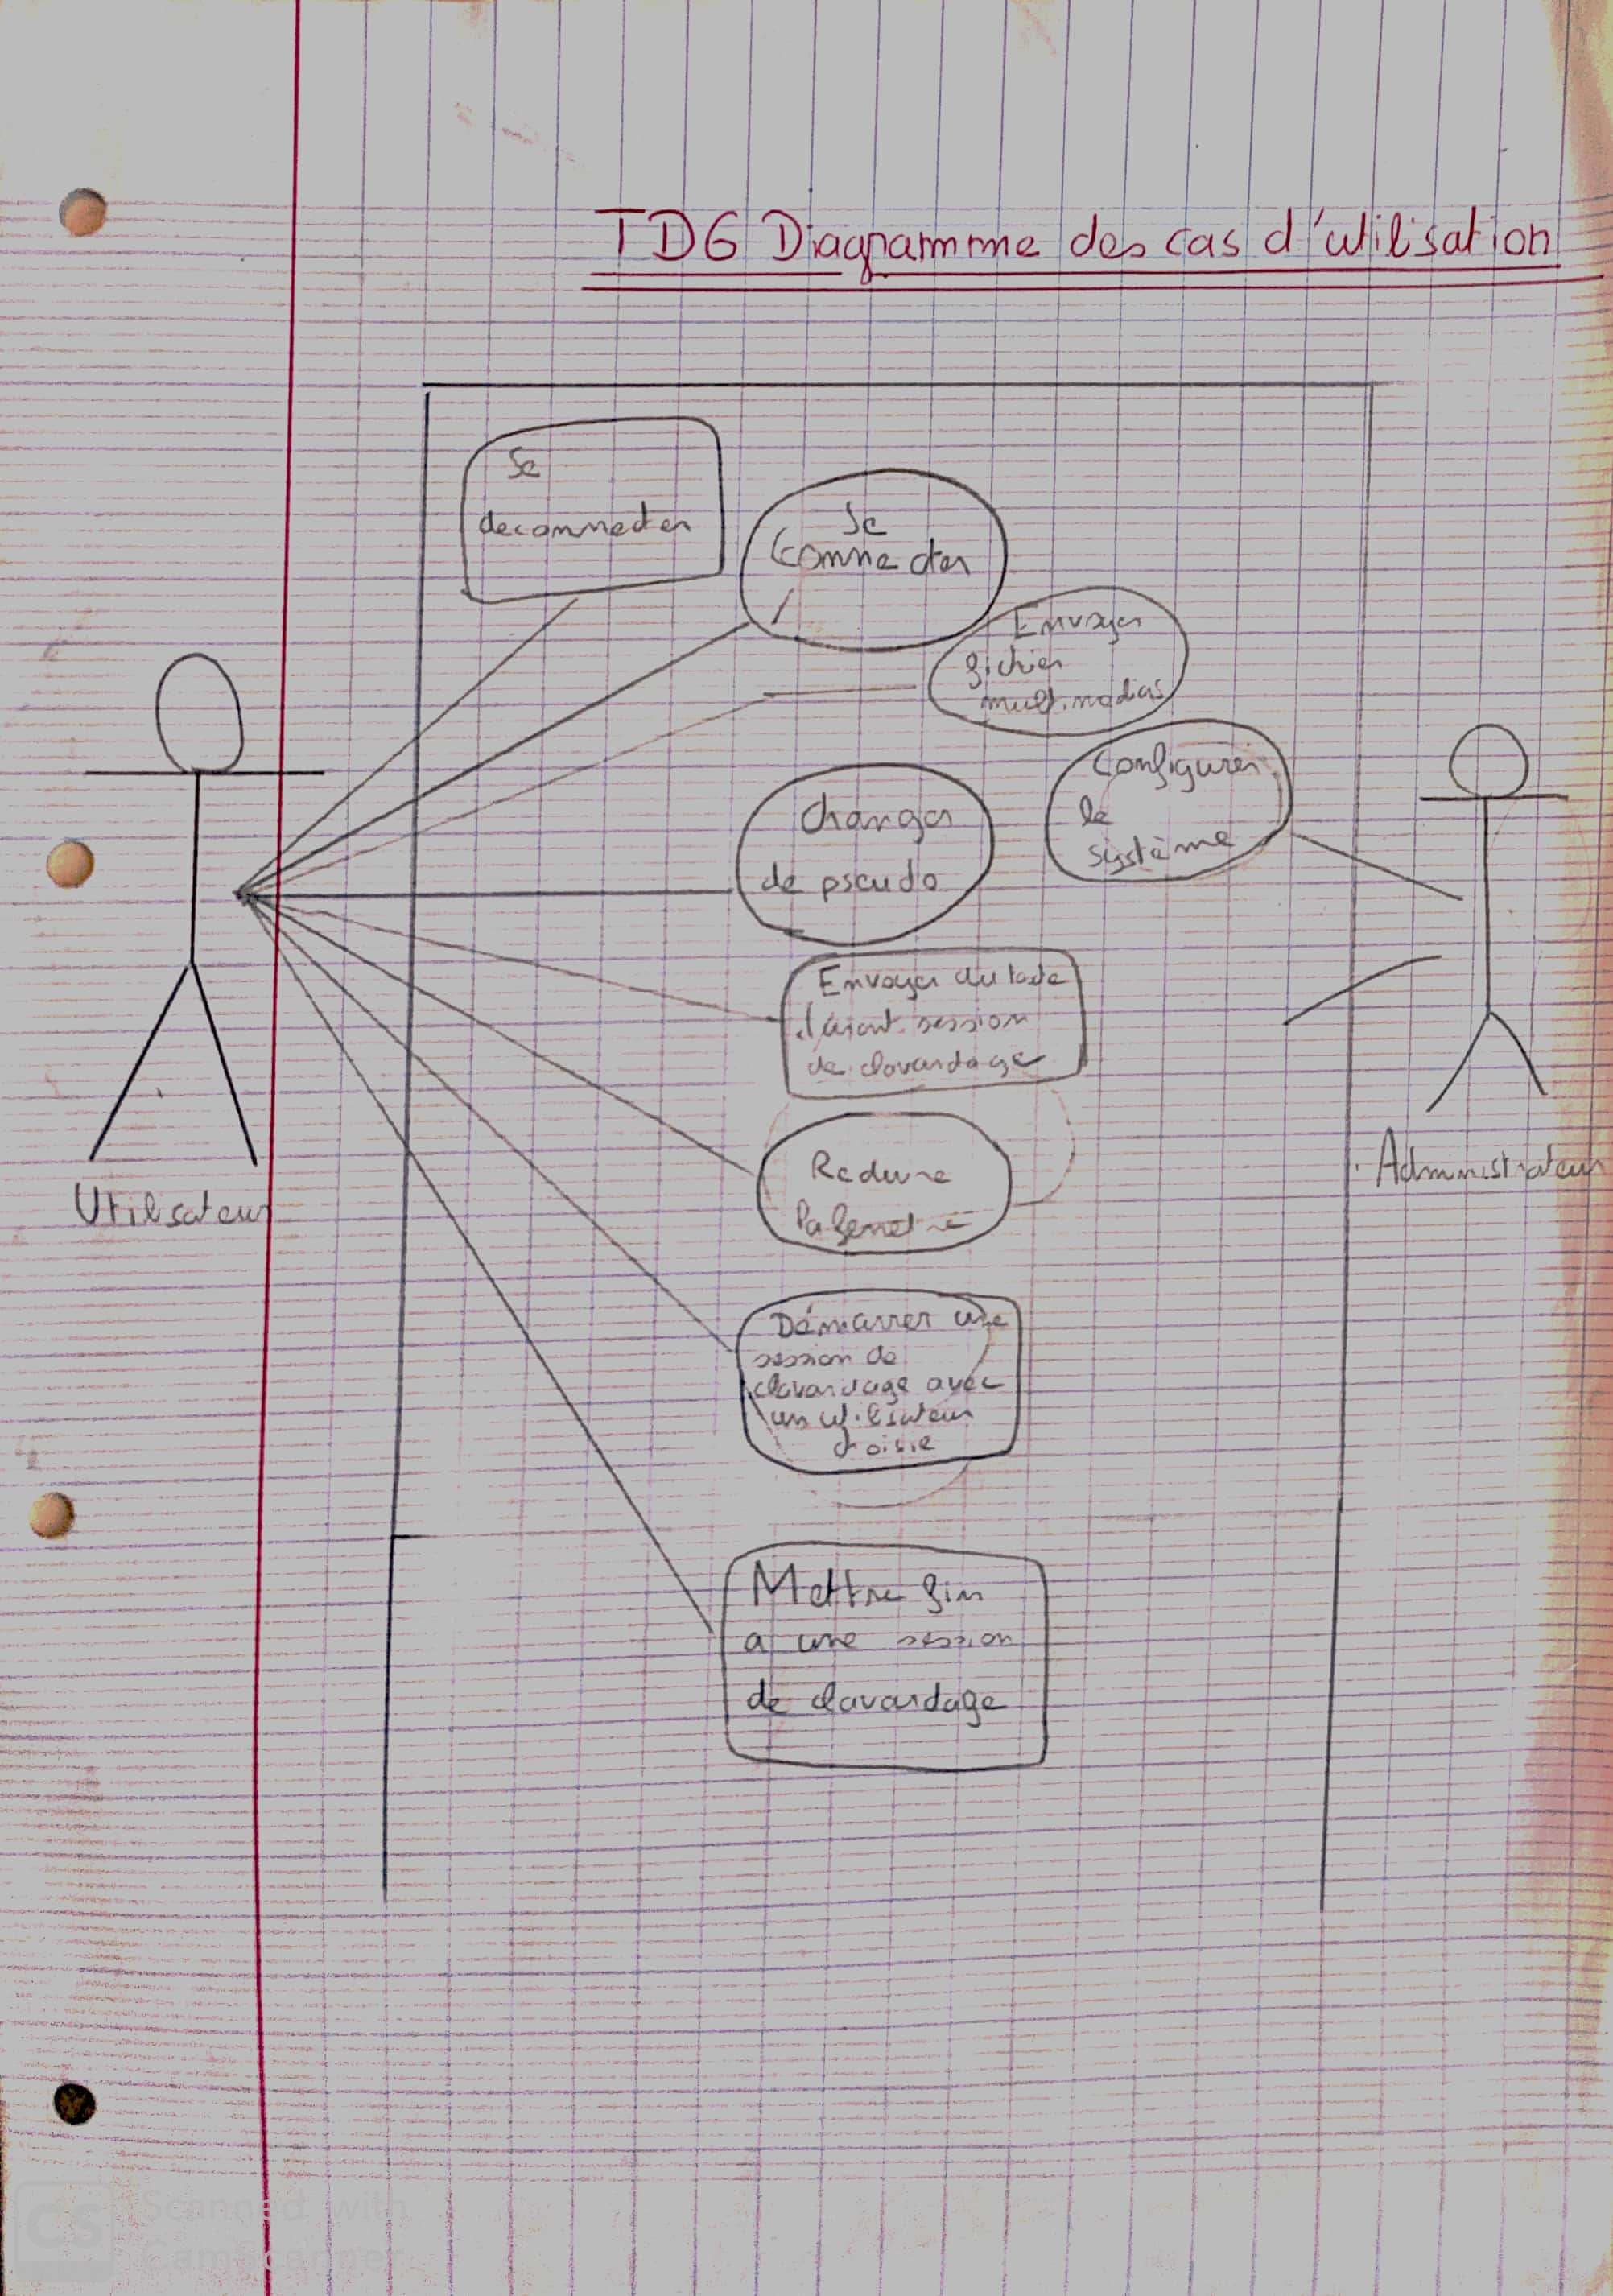 TD6 Diagramme des cas d'utilisation
Se
deconnecter
Se
Connecter
Envoyer
fichier
multimedias
Configurer
le
système
Changer
de pseudo
Envoyer du texte
session
de clavardage
Reduire
la fenetre
Démarrer une
session de
clavardage avec
un utilisateur
choisie
Mettre fin
a une session
de clavardage
Utilisateur
Administrateur
Scanned with
CS
CamScanner